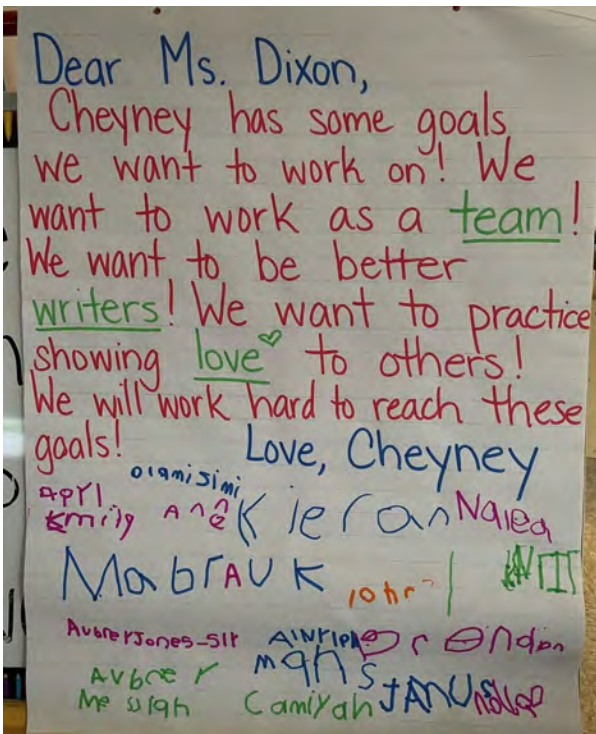 Dear Ms. Dixon,
Cheyney has some goals
we want to work on! We
want to work as a team!
We want to be better
writers! We want to practice
showing love to others!
We will work hard to reach these
goals! Love, Cheyney
APrl olamisimi
Emily Ana Kieran Nalea
MabrAUK
AubreyJones-Sir
mans
Messiah Camiyah JANUS